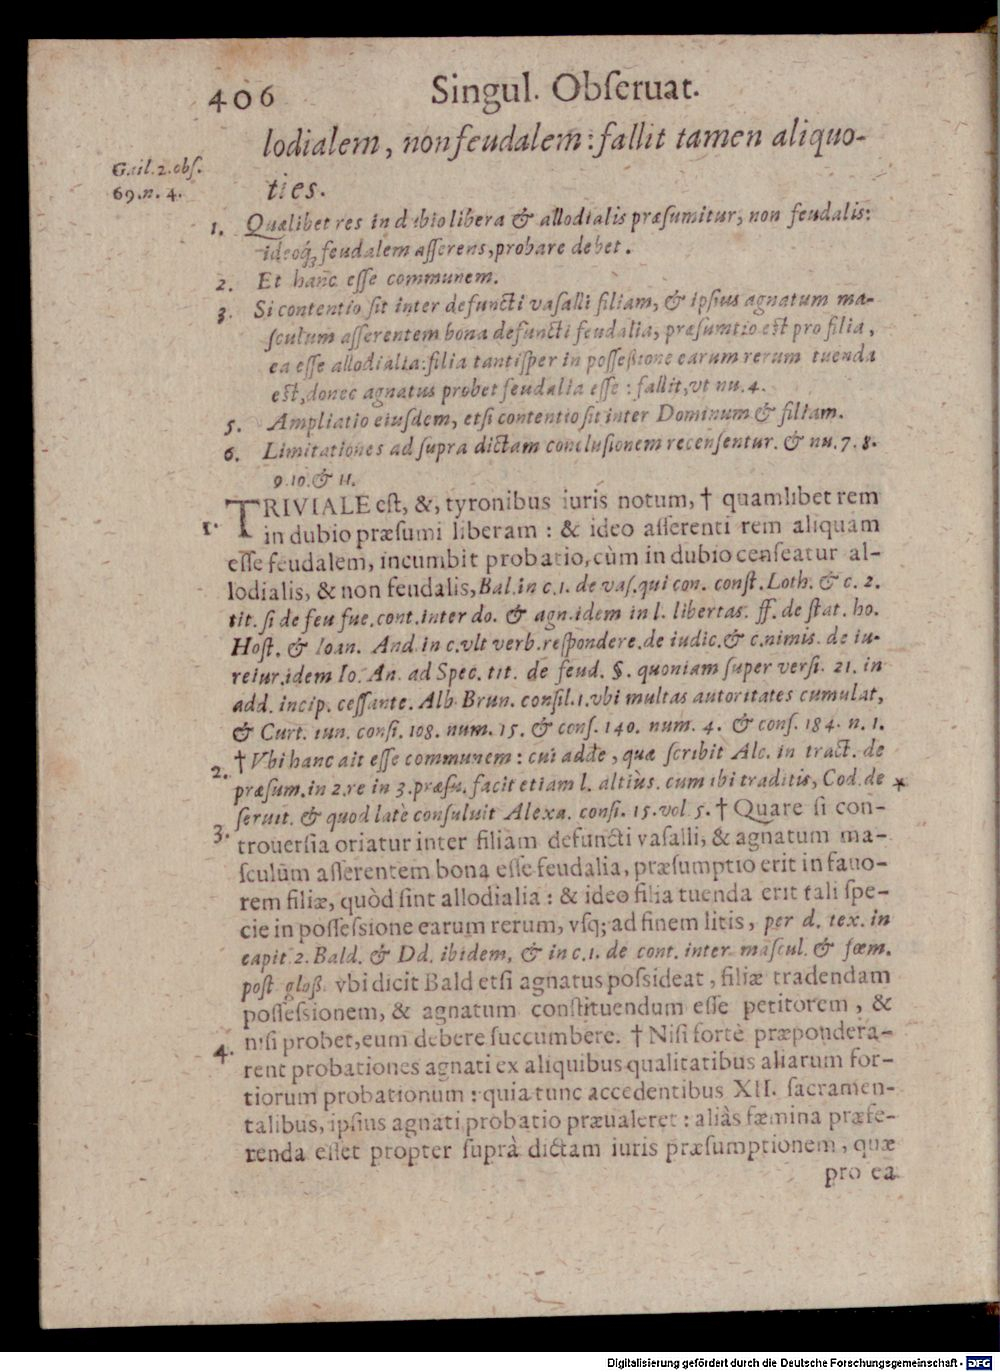 406 Singul. Obſeruat.
lodialem, non feudalem: fallit tamen aliquo-
Gail. 2. obſ.
69. n. 4.
ties.
1. Quælibet res in dubio libera & allodialis præſumitur, non feudalis:
ideoq́; feudalem aſſerens, probare debet.
2. Et hanc eſſe communem.
3. Si contentio ſit inter defuncti vaſalli filiam, & ipſius agnatum ma-
ſculum aſſerentem bona defuncti feudalia, præſumtio eſt pro filia,
ea eſſe allodialia: filia tantiſper in poſſeßione earum rerum tuenda
eſt, donec agnatus probet feudalia eſſe: fallit, vt nu. 4.
5. Ampliatio eiuſdem, etſi contentio ſit inter Dominum & filiam.
6. Limitationes ad ſupra dictam concluſionem recenſentur. & nu. 7. 8.
9. 10. & 11.
TRIVIALE eſt, &, tyronibus iuris notum, † quamlibet rem
1. in dubio præſumi liberam: & ideo aſſerenti rem aliquam
eſſe feudalem, incumbit probatio, cùm in dubio cenſeatur al-
lodialis, & non feudalis, Bal. in c. 1. de vaſ. qui con. conſt. Loth. & c. 2.
tit. ſi de feu fue. cont. inter do. & agn. idem in l. libertas. ff. de ſtat. ho.
Hoſt. & Ioan. And. in c. vlt verb. reſpondere. de iudic. & c. nimis. de iu-
reiur. idem Io. An. ad Spec. tit. de feud. §. quoniam ſuper verſi. 21. in
add. incip. ceſſante. Alb. Brun. conſil. 1. vbi multas autoritates cumulat,
& Curt. iun. conſi. 108. num. 15. & conſ. 140. num. 4. & conſ. 184. n. 1.
2. † Vbi hanc ait eſſe communem: cui adde, quæ ſcribit Alc. in tract. de
præſum. in 2. re in 3. præſu. facit etiam l. altiùs. cum ibi traditis, Cod. de *
ſeruit. & quod latè conſuluit Alexa. conſi. 15. vol. 5. † Quare ſi con-
3. trouerſia oriatur inter filiam defuncti vaſalli, & agnatum ma-
ſculum aſſerentem bona eſſe feudalia, præſumptio erit in fauo-
rem filiæ, quòd ſint allodialia: & ideo filia tuenda erit tali ſpe-
cie in poſſeſsione earum rerum, vſq; ad finem litis, per d. tex. in
capit. 2. Bald. & Dd. ibidem, & in c. 1. de cont. inter maſcul. & fœm.
poſt gloß. vbi dicit Bald etſi agnatus poſsideat, filiæ tradendam
poſſeſsionem, & agnatum conſtituendum eſſe petitorem, &
niſi probet, eum debere ſuccumbere. † Niſi fortè præpondera-
4. rent probationes agnati ex aliquibus qualitatibus aliarum for-
tiorum probationum: quia tunc accedentibus XII. ſacramen-
talibus, ipſius agnati probatio præualeret: aliàs fæmina præfe-
renda eſſet propter ſuprà dictam iuris præſumptionem, quæ
pro ea
Digitalisierung gefördert durch die Deutsche Forschungsgemeinschaft - DFG